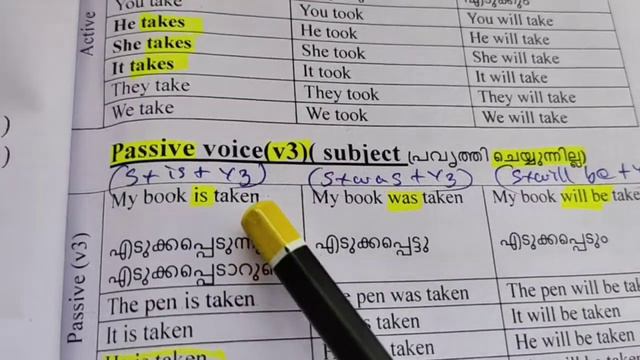 You take You took എടുക്കും
Active He takes He took You will take
She takes He took He will take
It takes She took She will take
They take It took It will take
We take They took They will take
We took We will take
Passive voice(v3)( subject പ്രവൃത്തി ചെയ്യുന്നില്ല)
(S + is + V3) (S + was + V3) (S + will be +
My book is taken My book was taken My book will be take
Passive (v3) എടുക്കപ്പെടു എടുക്കപ്പെട്ടു എടുക്കപ്പെടും
എടുക്കപ്പെടാറു
The pen is taken pen was taken The pen will be
It is taken taken It will be taken
He is taken taken He will be taken